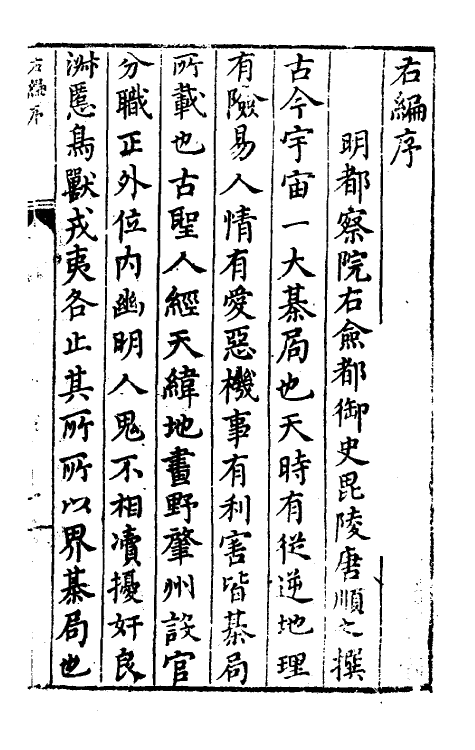 右編序
明都察院右僉都御史毘陵唐順之撰
古今宇宙一大棊局也天時有從逆地理
有險易人情有愛惡機事有利害皆棊局
所載也古聖人經天緯地畫野肇州設官
分職正外位内幽明人鬼不相凟擾奸良
淑慝鳥獸戎夷各止其所所以界棊局也
右編序